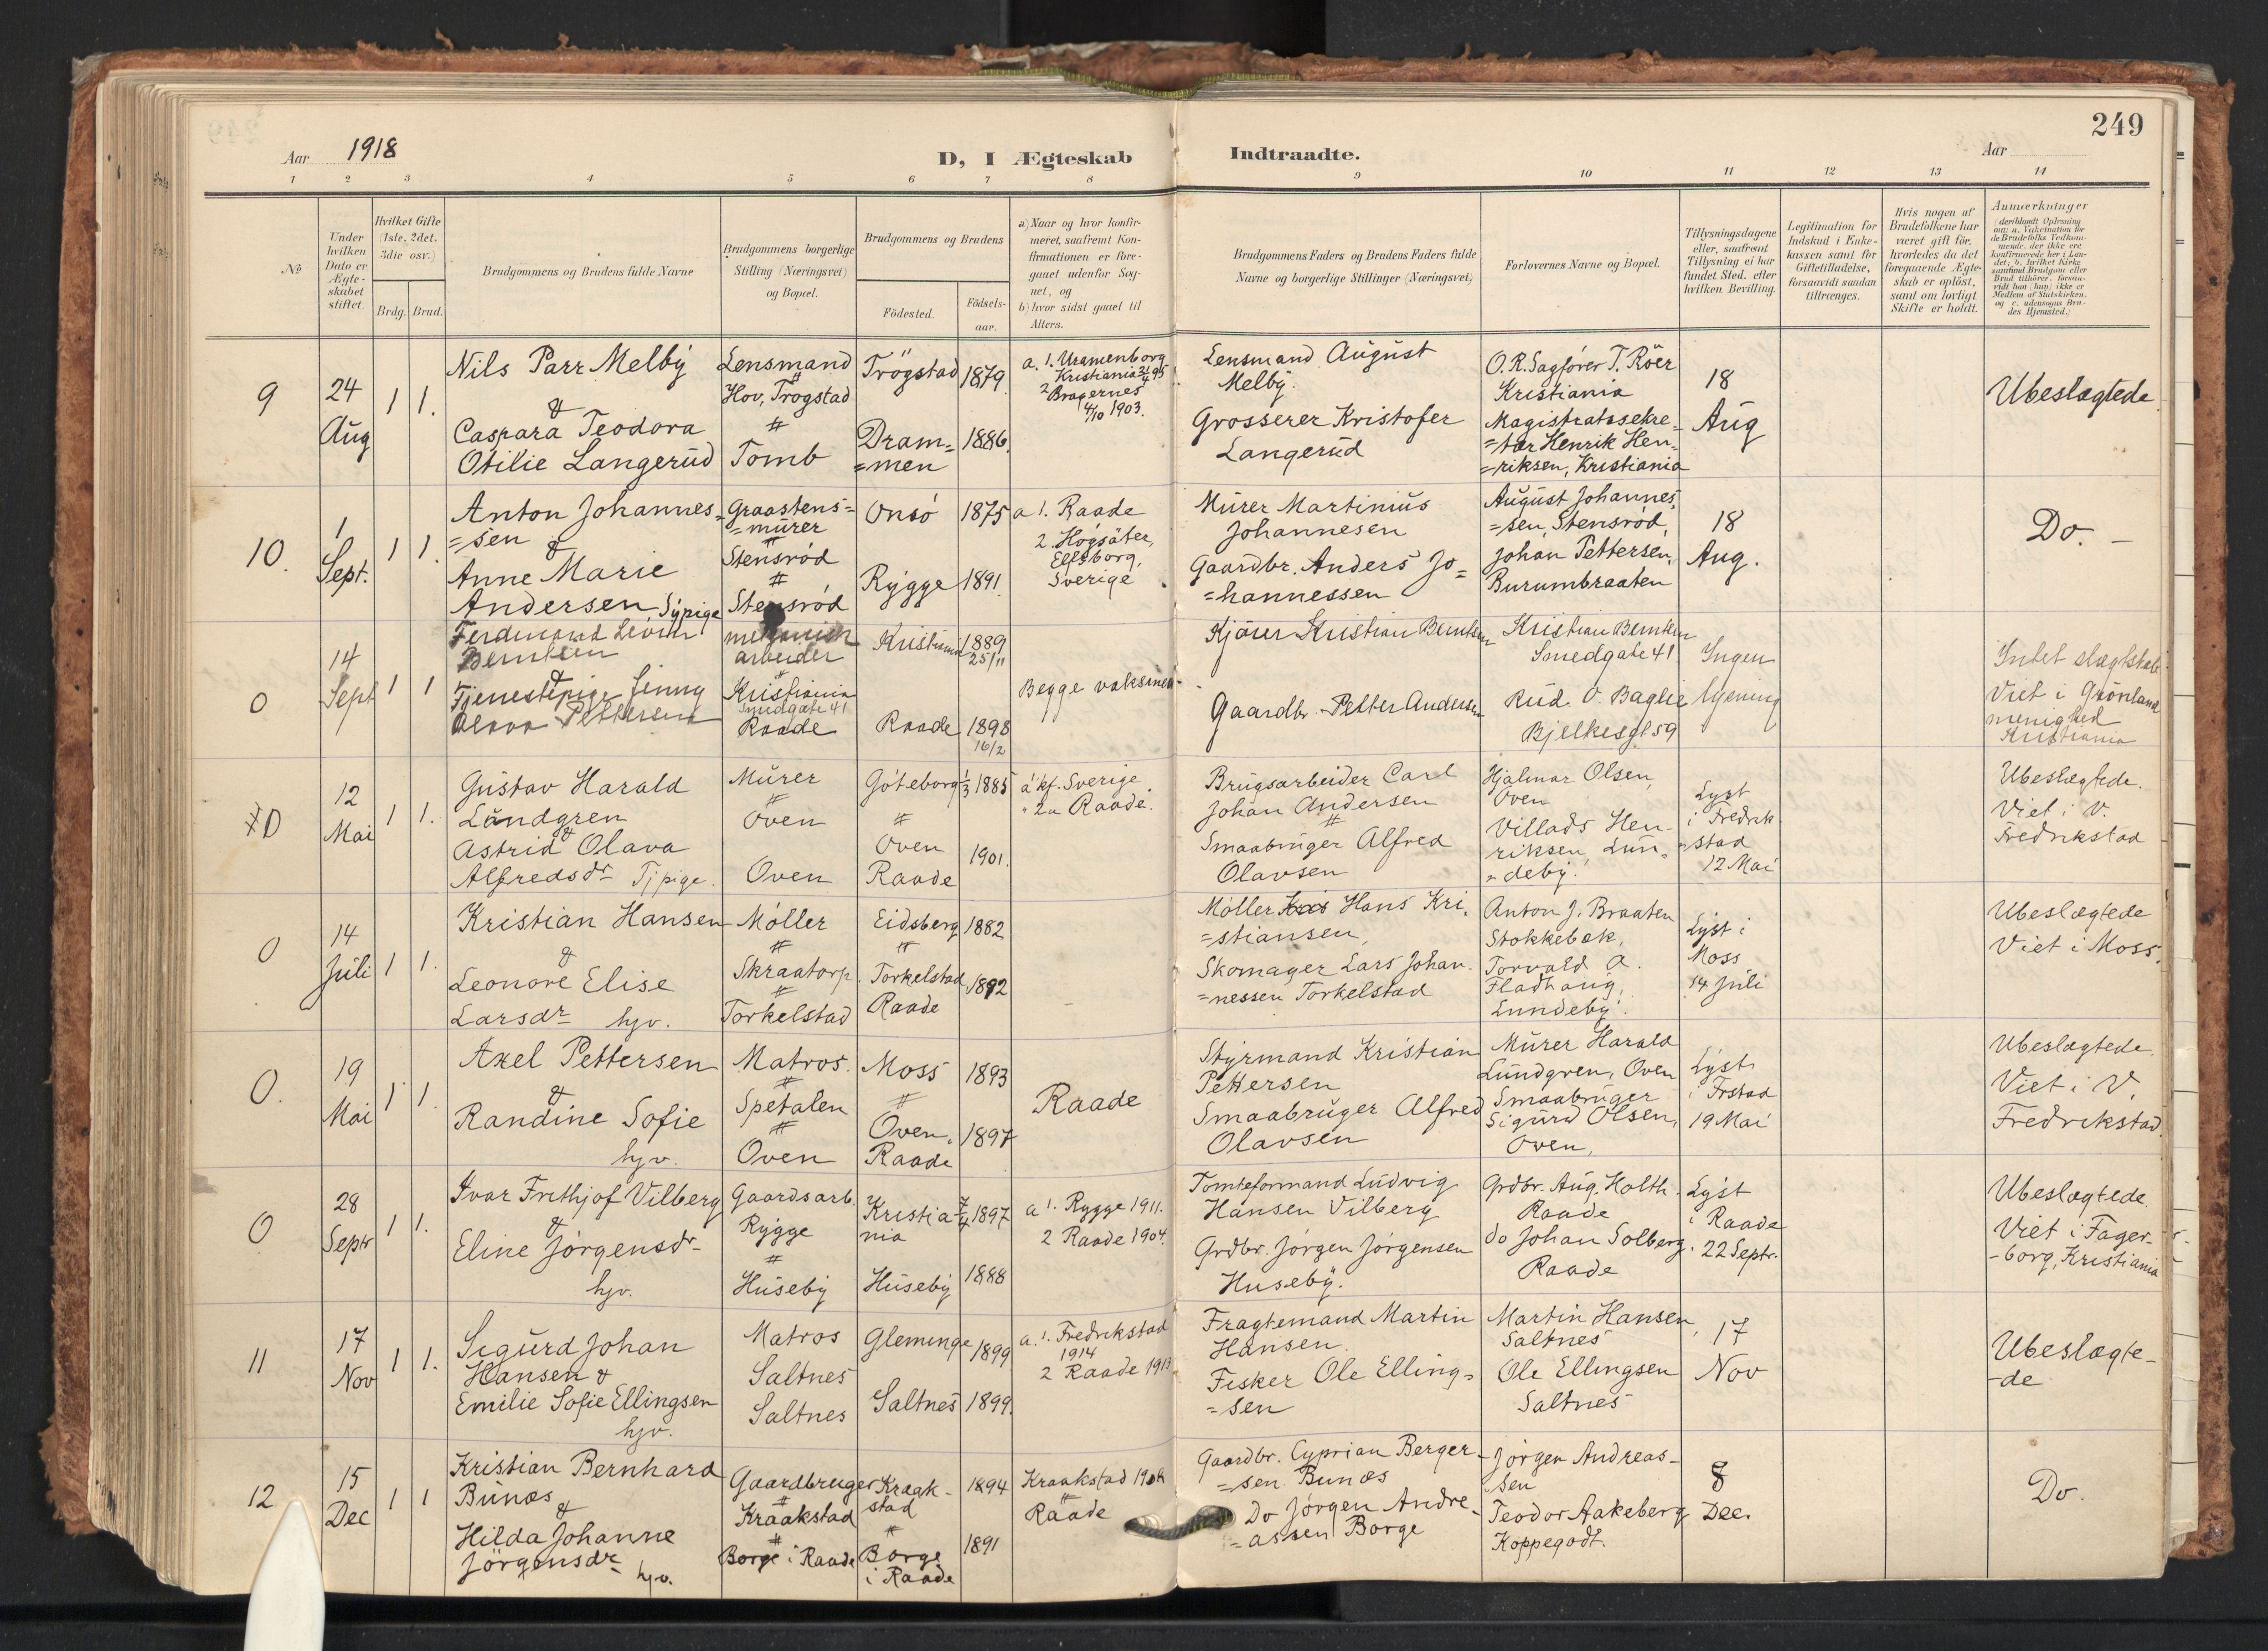 249
Aar 1918
D, I Ægteskab Indtraadte.
Aar
1 2 3 4 5 6 7 8 9 10 11 12 13 14
No
Under hvilken Dato er Ægteskabet stiftet.
Hvilket Gifte (1ste, 2det, 3die osv.)
Brdg. Brud.
Brudgommens og Brudens fulde Navne
Brudgommens borgerlige Stilling (Næringsvei) og Bopæl.
Brudgommens og Brudens
Födested.
Födselsaar.
a) Naar og hvor konfirmeret, saafremt Konfirmationen er foregaaet udenfor Sognet, og
b) hvor sidst gaaet til Alters.
Brudgommens Faders og Brudens Faders fulde Navne og borgerlige Stillinger (Næringsvei)
Forlovernes Navne og Bopæl.
Tillysningsdagene eller, saafremt Tillysning ei har fundet Sted, efter hvilken Bevilling.
Legitimation for Indskud i Enkekassen samt for Giftetilladelse, forsaavidt saadan tiltrænges.
Hvis nogen af Brudefolkene har været gift før, hvorledes da det foregaaende Ægteskab er opløst, samt om lovligt Skifte er holdt.
Anmerkninger
9
24 Aug
1 1.
Nils Parr Melby
&
Caspara Teodora
Otilie Langerud
Lensmand
Hov, Trøgstad
Tomb
Trögstad 1879
Dram=
=men 1886.
a. 1. Uranienborg
Kristiania 21/4 95
2 Bragernes
4/10 1903.
Lensmand August
Melby.
Grosserer Kristofer
Langerud
O.R. Sagfører T. Röer
Kristiania
Magistratssekre=
=tær Henrik Hen=
=riksen, Kristiania
18
Aug
Ubeslægtede
10.
1 Sept.
1 1.
Anton Johannes=
=sen
&
Anne Marie
Andersen Sypige
Graastens=
=murer
Stensröd
Stensröd
Onsö 1875
Rygge 1891.
a 1. Raade
2. Högsäter,
Elfsborg,
Sverige
Murer Martinius
Johannesen
Gaardbr. Anders Jo=
=hannessen
August Johannes=
=sen, Stensröd,
Johan Pettersen,
Burumbraaten
18
Aug.
Do. –
0
14 Sept
1 1
Ferdinand Levin
Berntsen
&
Tjenestepige Jenny
Olava Pettersen
mekanisk
arbeider
Kristiania
Smedgate 41
Raade
Kristiania 1889
25/11
Raade 1898
16/2
Begge vaksineret
Kjører Kristian Berntsen
Gaardbr. Petter Andersen
Kristian Berntsen
Smedgate 41
Rud. O. Baglie
Bjelkesgt 59
Ingen
lysning
Intet slægtskab
Viet i Grönland
menighed
Kristiania
0
12 Mai
1 1.
Gustav Harald
Lundgren
&
Astrid Olava
Alfredsdr Tj pige.
Murer
Oven
Oven
Göteborg 1/3 1885
Oven
Raade 1901.
a 1 kf. Sverige
" 2n Raade.
Brugsarbeider Carl
Johan Andersen
Smaabruger Alfred
Olavsen
Hjalmar Olsen,
Oven
Villads Hen-
riksen, Lun=
=deby.
Lyst
i Fredrik
=stad
12 Mai
Ubeslegtede.
Viet i V.
Fredrikstad
0
14 Juli
1 1.
Kristian Hansen
&
Leonore Elise
Larsdr hjv.
Möller
Skraatorp.
Torkelstad
Eidsberg 1882
Torkelstad
Raade 1892
Möller Hans Kri.
=stiansen,
Skomager Lars Johan.
=nessen Torkelstad
Anton J. Braaten
Stokkebæk,
Torvald A.
Fladhaug,
Lundeby.
Lyst i
Moss
14 Juli
Ubeslægtede
Viet i Moss.
0.
19 Mai
1 1.
Axel Pettersen
&
Randine Sofie
hjv.
Matros.
Spetalen
Oven
Moss 1893
Oven,
Raade 1897
Raade
Styrmand Kristian
Pettersen
Smaabruger Alfred
Olavsen
Murer Harald
Lundgren, Oven
Smaabruger
Sigurd Olsen,
Oven,
Lyst
i Frstad
19 Mai
Ubeslægtede.
Viet i V.
Fredrikstad.
0
28 Septr
1 1.
Ivar Frithjof Vilberg
&
Eline Jörgensdr
hjv.
Gaardsarb.
Rygge
Huseby
Kristia
nia 7/4 1897
Huseby 1888
a 1. Rygge 1911.
2 Raade 1904.
Tomteformand Ludvig
Hansen Vilberg
Grdbr. Jörgen Jörgensen
Huseby.
Grdbr. Aug. Holth
Raade
do Johan Solberg.
Raade
Lyst
i Raade
22 Septr.
Ubeslægtede.
Viet i Fager-
-borg, Kristiania
11
17 Nov
1 1.
Sigurd Johan
Hansen &
Emilie Sofie Ellingsen
hjv.
Matros
Saltnes
Saltnes
Glemminge 1899
Saltnes 1899.
a. 1. Fredrikstad
1914
2 Raade 1913
Fragtemand Martin
Hansen.
Fisker Ole Elling=
=sen
Martin Hansen,
Saltnes
Ole Ellingsen
Saltnes
17
Nov
Ubeslægte-
-de
12
15 Dec
1 1
Kristian Bernhard
Bunæs
&
Hilda Johanne
Jörgensdr hjv.
Gaardbruger
Kraakstad
Borge i Raade
Kraak-
stad 1894
Borge
i Raade 1891
Kraakstad
Raade
Gaardbr. Cyprian Berger-
=sen Bunæs
Do Jörgen Andre-
=assen Borge
Jörgen Andreas-
sen
Teodor Aakeberg
Koppegodt.
8
Dec.
Do.